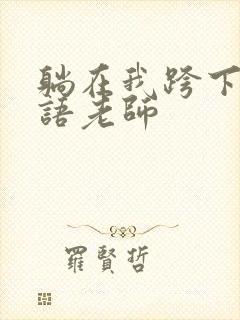 躺在我跨下
語老師
羅賢哲